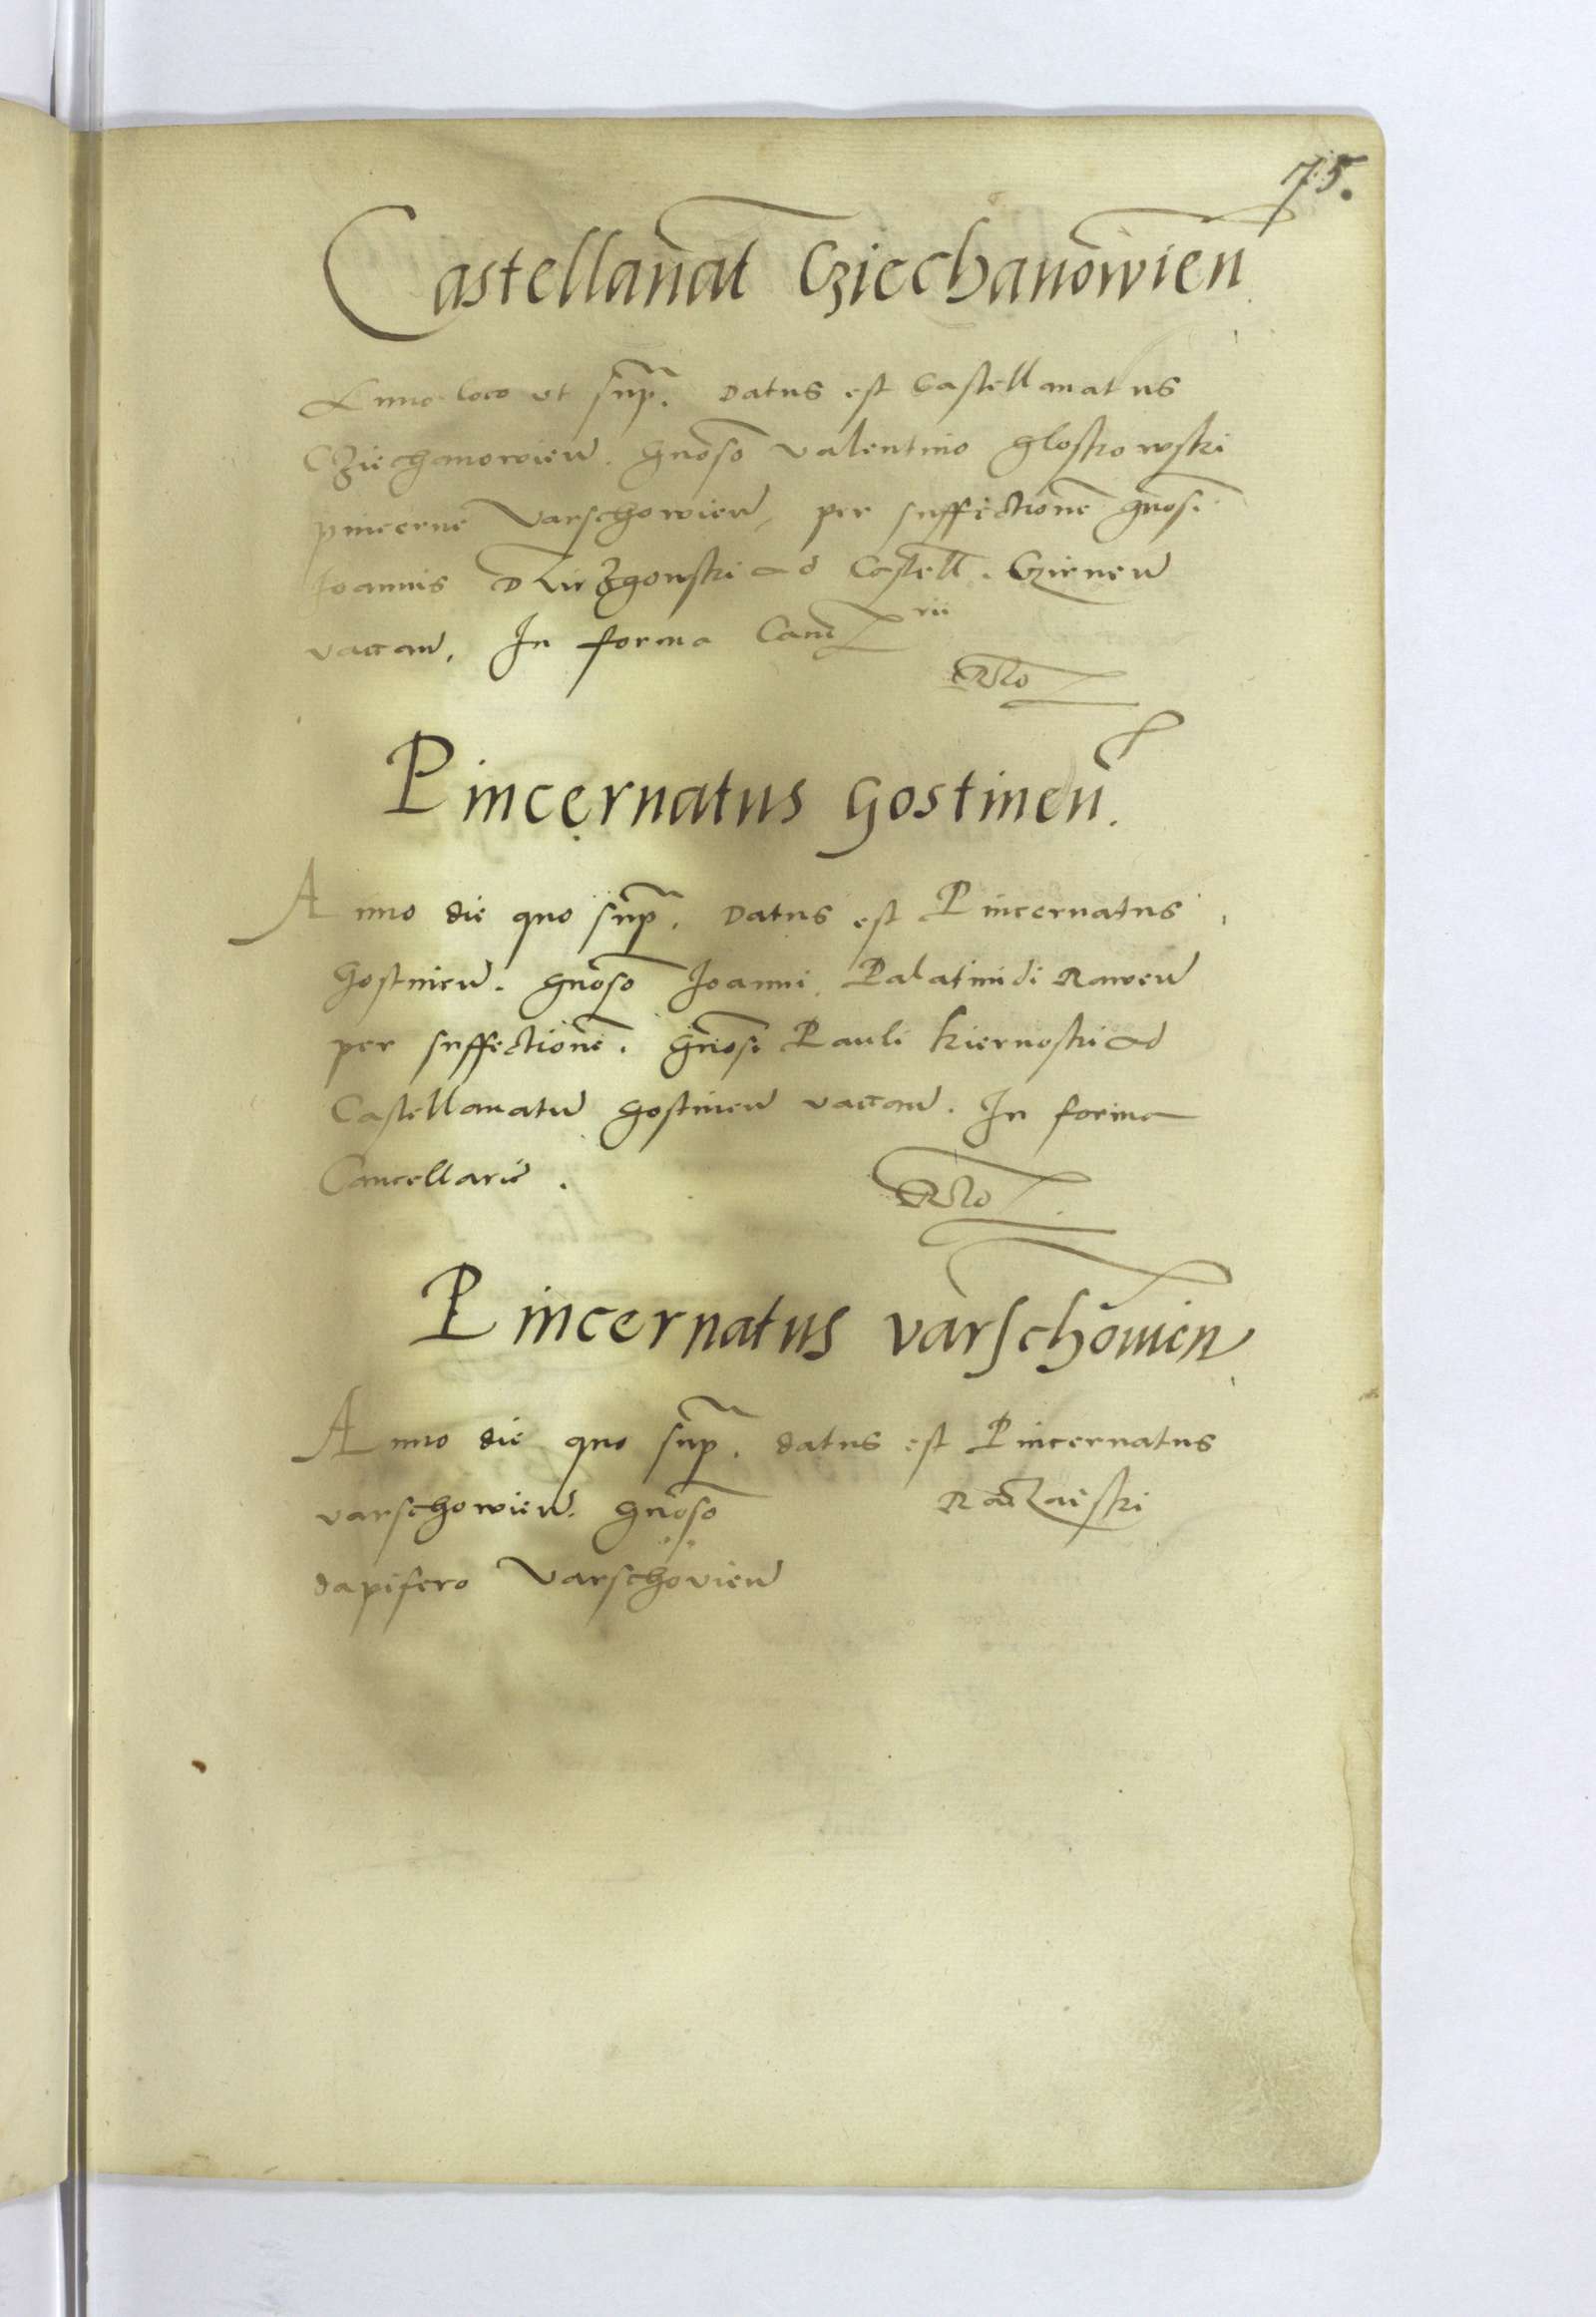 75.
Castellanat Cziechanowien
Anno loco ut sup. Datus est Castellanatus
Cziechanowien. Gnoso Valentino Gloskowski
pincerne Varschowien, per suffectione gnosi
Joannis Dzierzgonski ad Castell. Czirnen
vacan. In forma Canrii
Pincernatus Gostinen.
Anno die quo sup. Datus est Pincernatus
Gostinien. Gnoso Joanni Palatinidi Rawen
per suffectione. Gnosi Pauli Kiernoski ad
Castellanatu Gostinen vacan. In forma
Cancellarie.
Pincernatus Varschowien
Anno die quo sup. datus est Pincernatus
varschowien. Gnoso Radzaiski
dapifero Varschovien